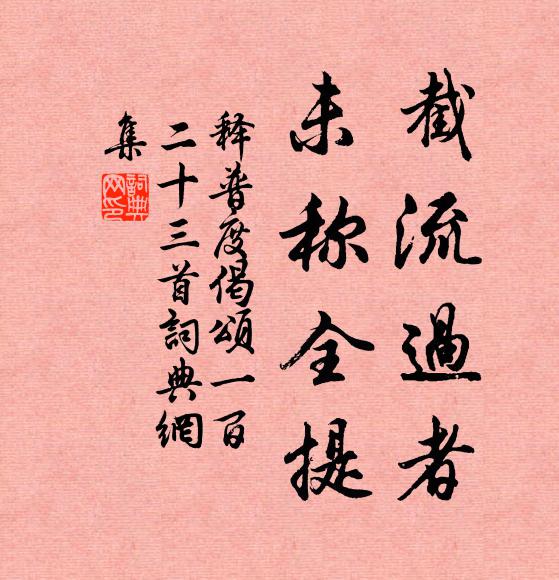 截流過者
未称全提
释普度偈頌一百
二十三首詞典網
集
詞典網印